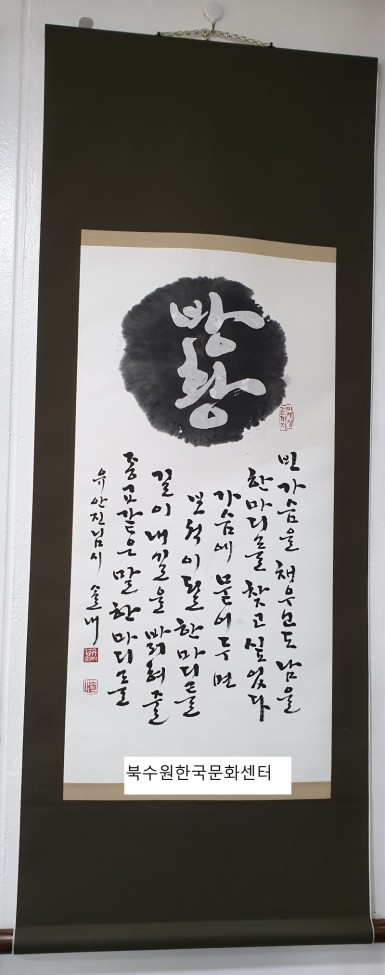 방황
빈 가슴을 채우고도 남을
한마디를 찾고 싶었다
가슴에 묻어 두면
보석이 될 한마디를
길이 내 길을 밝혀 줄
종교같은 말 한마디를
유안진님 시 솔내
북수원한국문화센터